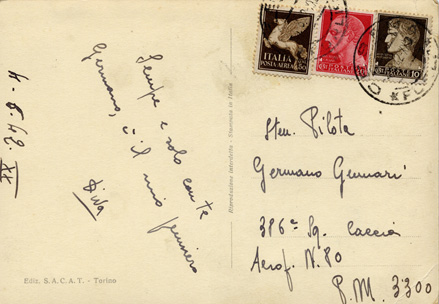 4-8-42 XX
Sempre e solo con te
Germano, è il mio pensiero
Diva
Ediz. S.A.C.A.T. - Torino
Riproduzione interdetta - Stampata in Italia
ITALIA
POSTA AEREA
Sten. Pilota
Germano Gennari
386ª Sq. Caccia
Aerof. N. 80
P.M. 3300